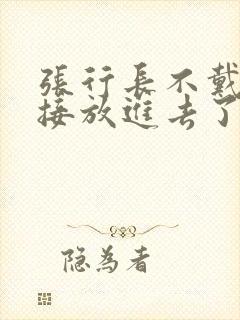 張行長不戴
接放進去了
隐為者